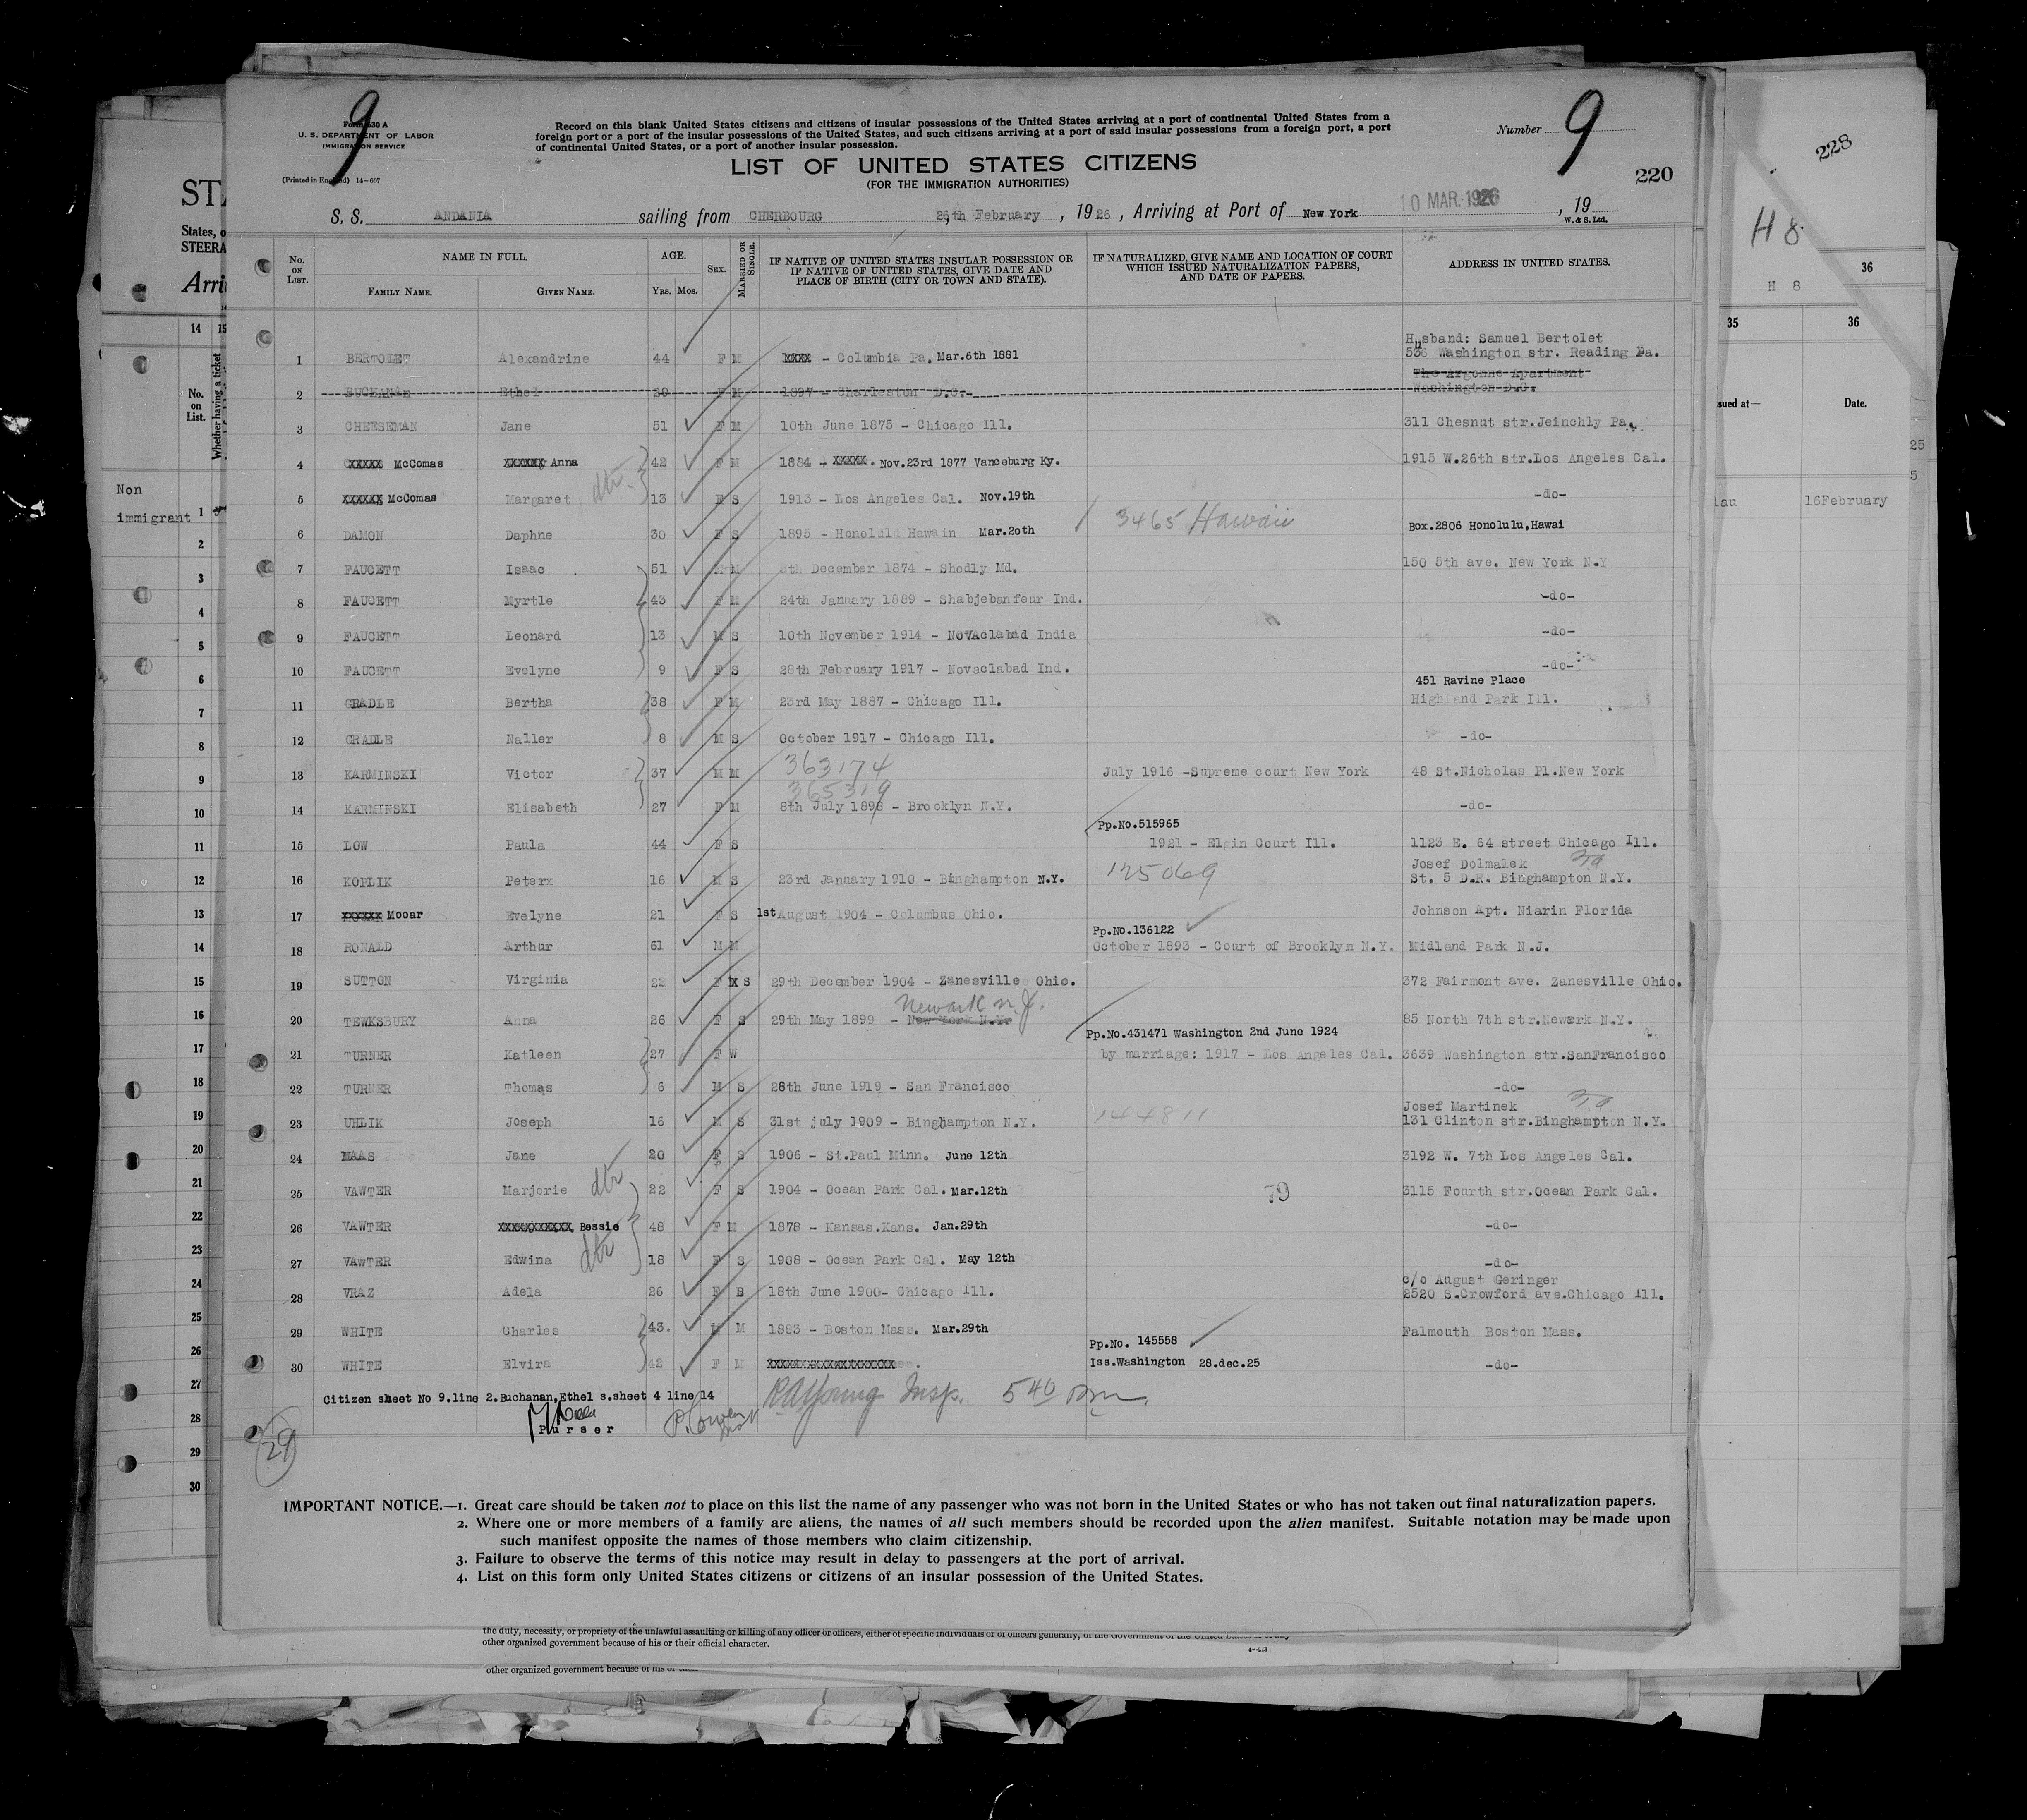 9
9
Form 630 A
U. S. DEPARTMENT OF LABOR
IMMIGRATION SERVICE
(Printed in England) 14—607
Record on this blank United States citizens and citizens of insular possessions of the United States arriving at a port of continental United States from a
foreign port or a port of the insular possessions of the United States, and such citizens arriving at a port of said insular possessions from a foreign port, a port
of continental United States, or a port of another insular possession.
Number
LIST OF UNITED STATES CITIZENS
(FOR THE IMMIGRATION AUTHORITIES)
220
228
S. S. ANDANIA sailing from CHERBOURG 26th February, 1926, Arriving at Port of New York 10 MAR. 1926, 19
W. & S. Ltd.
No. on List.
NAME IN FULL.
Family Name. Given Name.
AGE.
Yrs. Mos.
Sex.
Married or Single.
IF NATIVE OF UNITED STATES INSULAR POSSESSION OR
IF NATIVE OF UNITED STATES, GIVE DATE AND
PLACE OF BIRTH (CITY OR TOWN AND STATE).
IF NATURALIZED, GIVE NAME AND LOCATION OF COURT
WHICH ISSUED NATURALIZATION PAPERS,
AND DATE OF PAPERS.
ADDRESS IN UNITED STATES.
Husband: Samuel Bertolet
1 BERTOLET Alexandrine 44 F M xxxx – Columbia Pa. Mar.6th 1881 536 Washington str. Reading Pa.
The Argonne Apartment
2 BUCHANAN Ethel F M 1897 – Charleston D.C. Washington D.C.
3 CHEESEMAN Jane 51 F M 10th June 1875 – Chicago Ill. 311 Chesnut str.Jeinchly Pa.
4 McComas Anna 42 F M 1884 – xxxxx. Nov.23rd 1877 Vanceburg Ky. 1915 W.26th str.Los Angeles Cal.
5 McComas Margaret dtr. 13 F S 1913 – Los Angeles Cal. Nov.19th -do-
6 DAMON Daphne 30 F S 1895 – Honolulu Hawain Mar.20th 3465 Hawaii Box.2806 Honolulu,Hawai
7 FAUCETT Isaac 51 M M 8th December 1874 – Shodly Md. 150 5th ave. New York N.Y
8 FAUCETT Myrtle 43 F M 24th January 1889 – Shabjebanfeur Ind. -do-
9 FAUCETT Leonard 13 M S 10th November 1914 – Novaclabad India -do-
10 FAUCETT Evelyne 9 F S 28th February 1917 – Novaclabad Ind. -do-
451 Ravine Place
11 GRADLE Bertha 38 F M 23rd May 1887 – Chicago Ill. Highland Park Ill.
12 GRADLE Naller 8 M S October 1917 – Chicago Ill. -do-
363174
13 KARMINSKI Victor 37 M M July 1916 -Supreme court New York 48 St.Nicholas Pl.New York
365319
14 KARMINSKI Elisabeth 27 F M 8th July 1898 – Brooklyn N.Y. -do-
Pp.No.515965
15 LOW Paula 44 F S 1921 – Elgin Court Ill. 1123 E. 64 street Chicago Ill.
Josef Dolmalek
16 KOPLIK Peterx 16 M S 23rd January 1910 – Binghampton N.Y. 125069 St. 5 D.R. Binghampton N.Y.
17 xxxxxx Mooar Evelyne 21 F S 1st August 1904 – Columbus Ohio. Johnson Apt. Niarin Florida
Pp.No.136122
18 RONALD Arthur 61 M M October 1893 – Court of Brooklyn N.Y. Midland Park N.J.
19 SUTTON Virginia 22 F X S 29th December 1904 – Zanesville Ohio. 372 Fairmont ave. Zanesville Ohio.
Newark N.J.
20 TEWKSBURY Anna 26 F S 29th May 1899 – New York N.Y. 85 North 7th str.Newerk N.Y.
Pp.No.431471 Washington 2nd June 1924
21 TURNER Katleen 27 F W by marriage: 1917 – Los Angeles Cal. 3639 Washington str.SanFrancisco
22 TURNER Thomas 6 M S 28th June 1919 – San Francisco -do-
Josef Martinek
23 UHLIK Joseph 16 M S 31st july 1909 – Binghampton N.Y. 144811 131 Clinton str.Binghampton N.Y.
24 MAAS Jane 20 F S 1906 – St.Paul Minn. June 12th 3192 W. 7th Los Angeles Cal.
25 VAWTER Marjorie dtr 22 F S 1904 – Ocean Park Cal. Mar.12th 79 3115 Fourth str.Ocean Park Cal.
26 VAWTER xxxxxxxxxxx Bessie 48 F M 1878 – Kansas.Kans. Jan.29th -do-
27 VAWTER Edwina dtr 18 F S 1908 – Ocean Park Cal. May 12th -do-
c/o August Geringer
28 VRAZ Adela 26 F S 18th June 1900– Chicago Ill. 2520 S.Crowford ave.Chicago Ill.
29 WHITE Charles 43. M M 1883 – Boston Mass. Mar.29th Falmouth Boston Mass.
Pp.No. 145558
30 WHITE Elvira 42 F M Iss.Washington 28.dec.25 -do-
Citizen sheet No 9.line 2.Buchanan,Ethel s.sheet 4 line 14
R A Young Insp. 5 40 pm.
Purser
29
IMPORTANT NOTICE.—1. Great care should be taken not to place on this list the name of any passenger who was not born in the United States or who has not taken out final naturalization papers.
2. Where one or more members of a family are aliens, the names of all such members should be recorded upon the alien manifest. Suitable notation may be made upon
such manifest opposite the names of those members who claim citizenship.
3. Failure to observe the terms of this notice may result in delay to passengers at the port of arrival.
4. List on this form only United States citizens or citizens of an insular possession of the United States.
the duty, necessity, or propriety of the unlawful assaulting or killing of any officer or officers, either of specific individuals or of officers generally, of the Government of the United States or of any
other organized government because of his or their official character.
other organized government because of his or
States, o
STEERA
Arri
14 15
No. on List.
Whether having a ticket
Non
immigrant
1
2
3
4
5
6
7
8
9
10
11
12
13
14
15
16
17
18
19
20
21
22
23
24
25
26
27
28
29
30
H 8
36
H 8
35 36
sued at— Date.
tau 16February
25
5